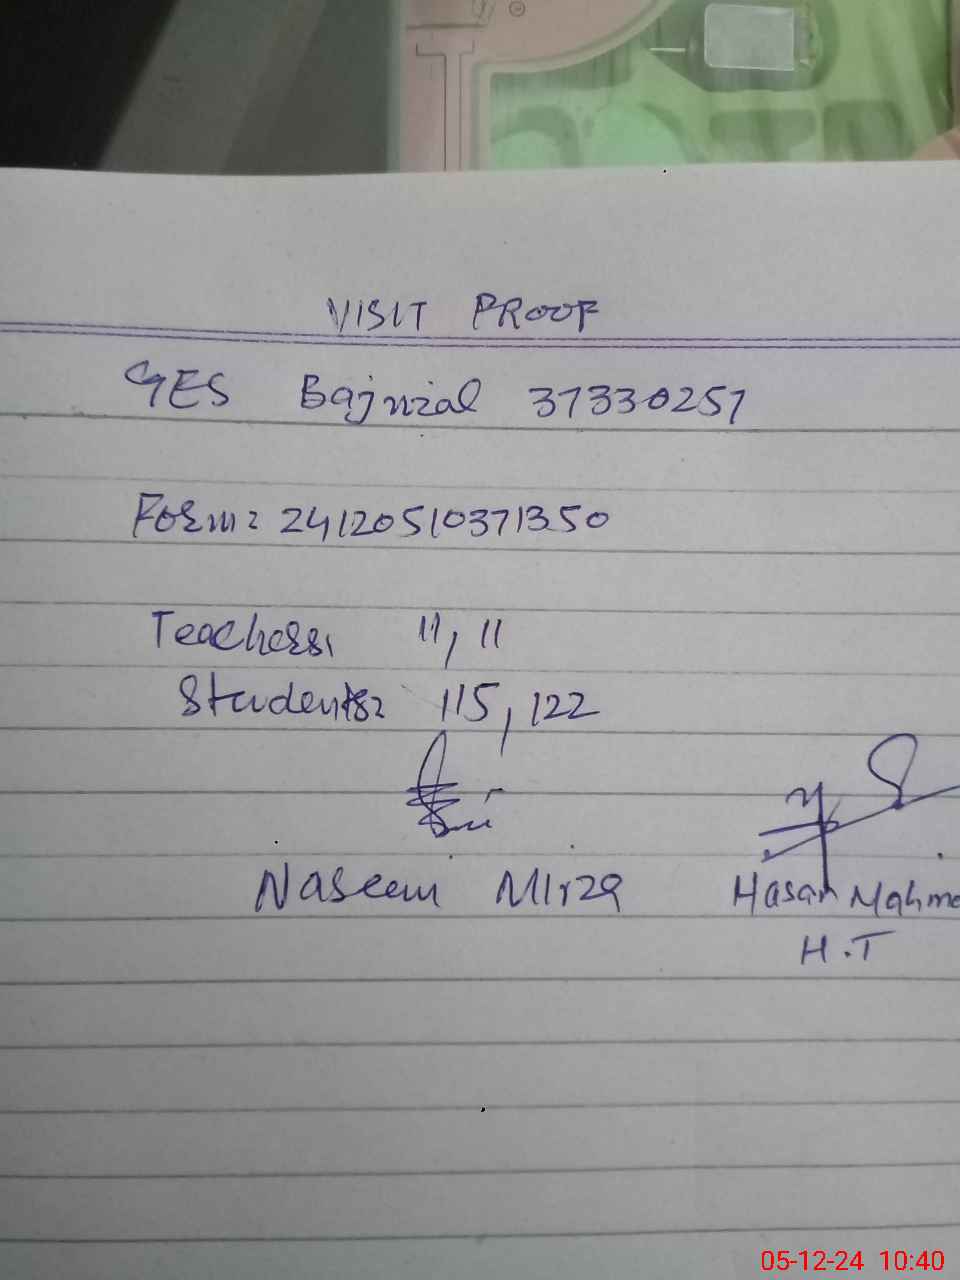 VISIT PROOF
GES Bajnial 37330251
Form: 24120510371350
Teachers: 11, 11
Students: 115, 122
Naseem Mirza
Hasan Mahmo
H.T
05-12-24 10:40